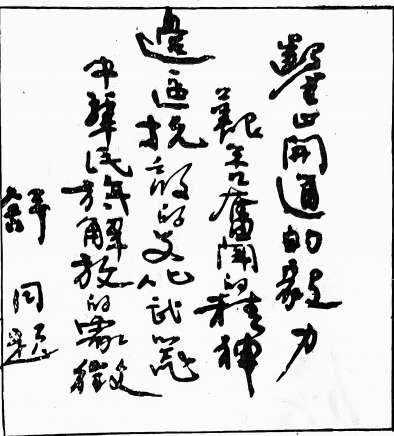 鑿山開通的毅力
艱苦奮鬥的精神
邊區抗敵的文化武器
中華民族解放的徵
舒同題